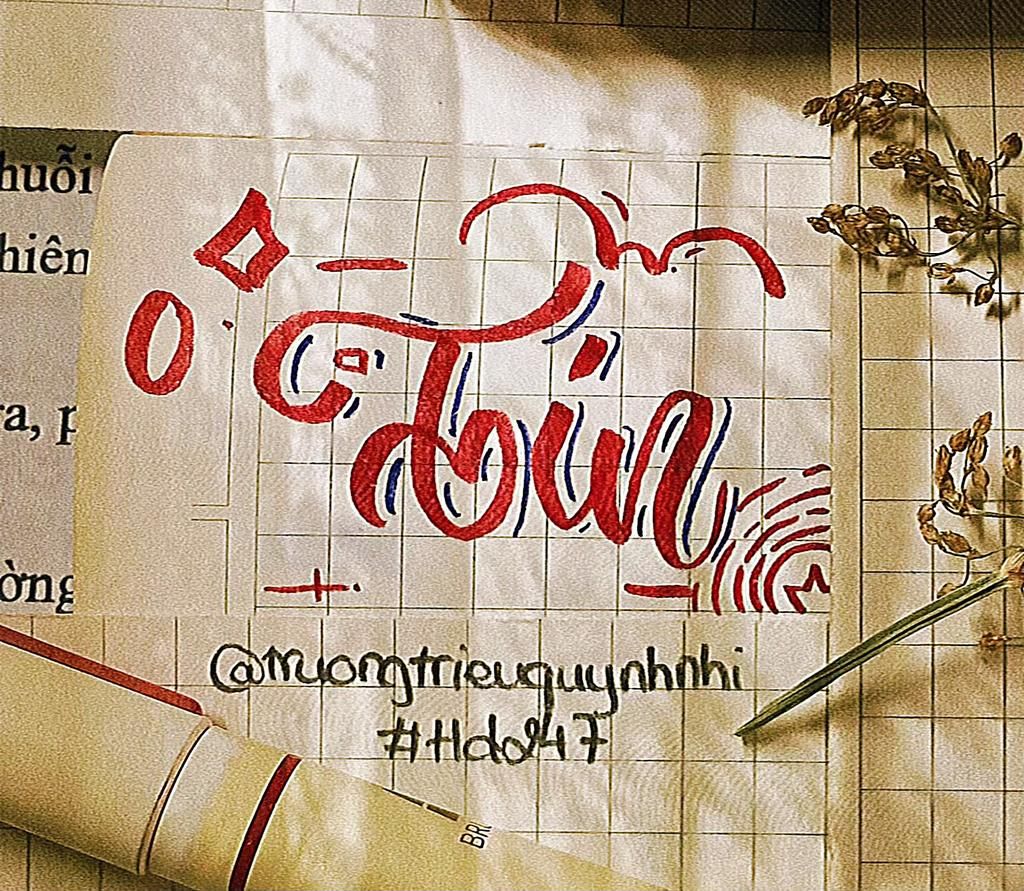 huỗi
hiên
ra, p
ờng
Tin
@truongtrieuquynhnhi
BRU